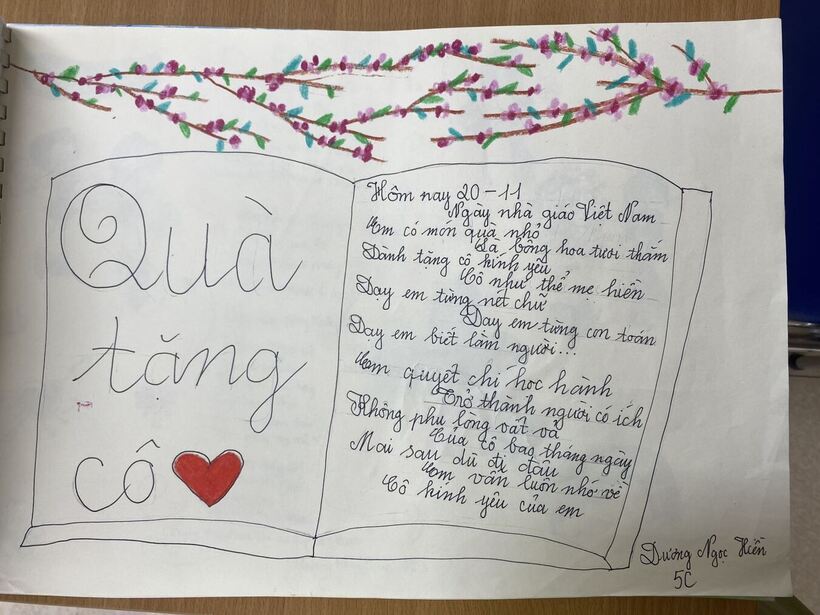 Quà
tặng
cô
Hôm nay 20-11
Ngày nhà giáo Việt Nam
Em có món quà nhỏ
Là bông hoa tươi thắm
Dành tặng cô kính yêu
Cô như thể mẹ hiền
Dạy em từng nét chữ
Dạy em từng con toán
Dạy em biết làm người...
Em quyết chí học hành
Trở thành người có ích
Không phụ lòng vất vả
Của cô bao tháng ngày
Mai sau dù đi đâu
Em vẫn luôn nhớ về
Cô kính yêu của em
Dương Ngọc Hiền
5C